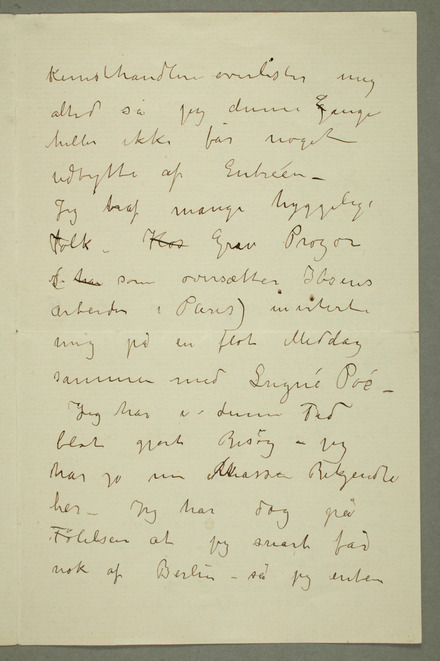 Kunsthandlere overlister mig
altid så jeg denne Gange
heller ikke får noget
udbytte af Entréen –
Jeg traf mange hyggelige
folk – Kos Grev Prozor
som oversætter Ibsens
arbeider i Paris) inviterte
mig på en flot Middag
sammen med Lugné Poé –
Jeg har i denne Tid
blot gjort Besøg – jeg
har jo en Masse Bekjendte
her – Jeg har dog på
Følelsen at jeg snart får
nok af Berlin – så jeg enten